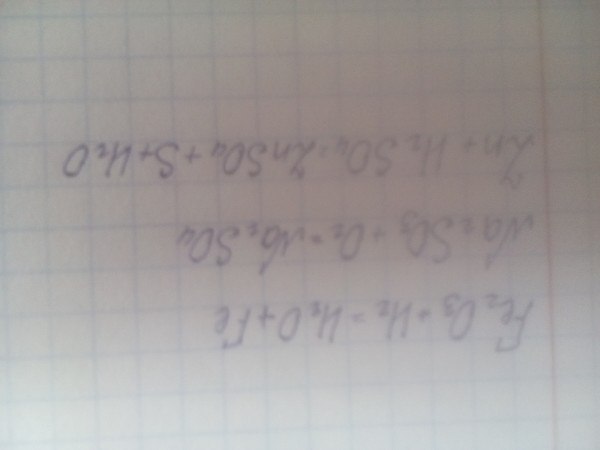 Fe₂O₃ + H₂ = H₂O + Fe
Na₂SO₃ + O₂ = Na₂SO₄
Zn + H₂SO₄ = ZnSO₄ + S + H₂O